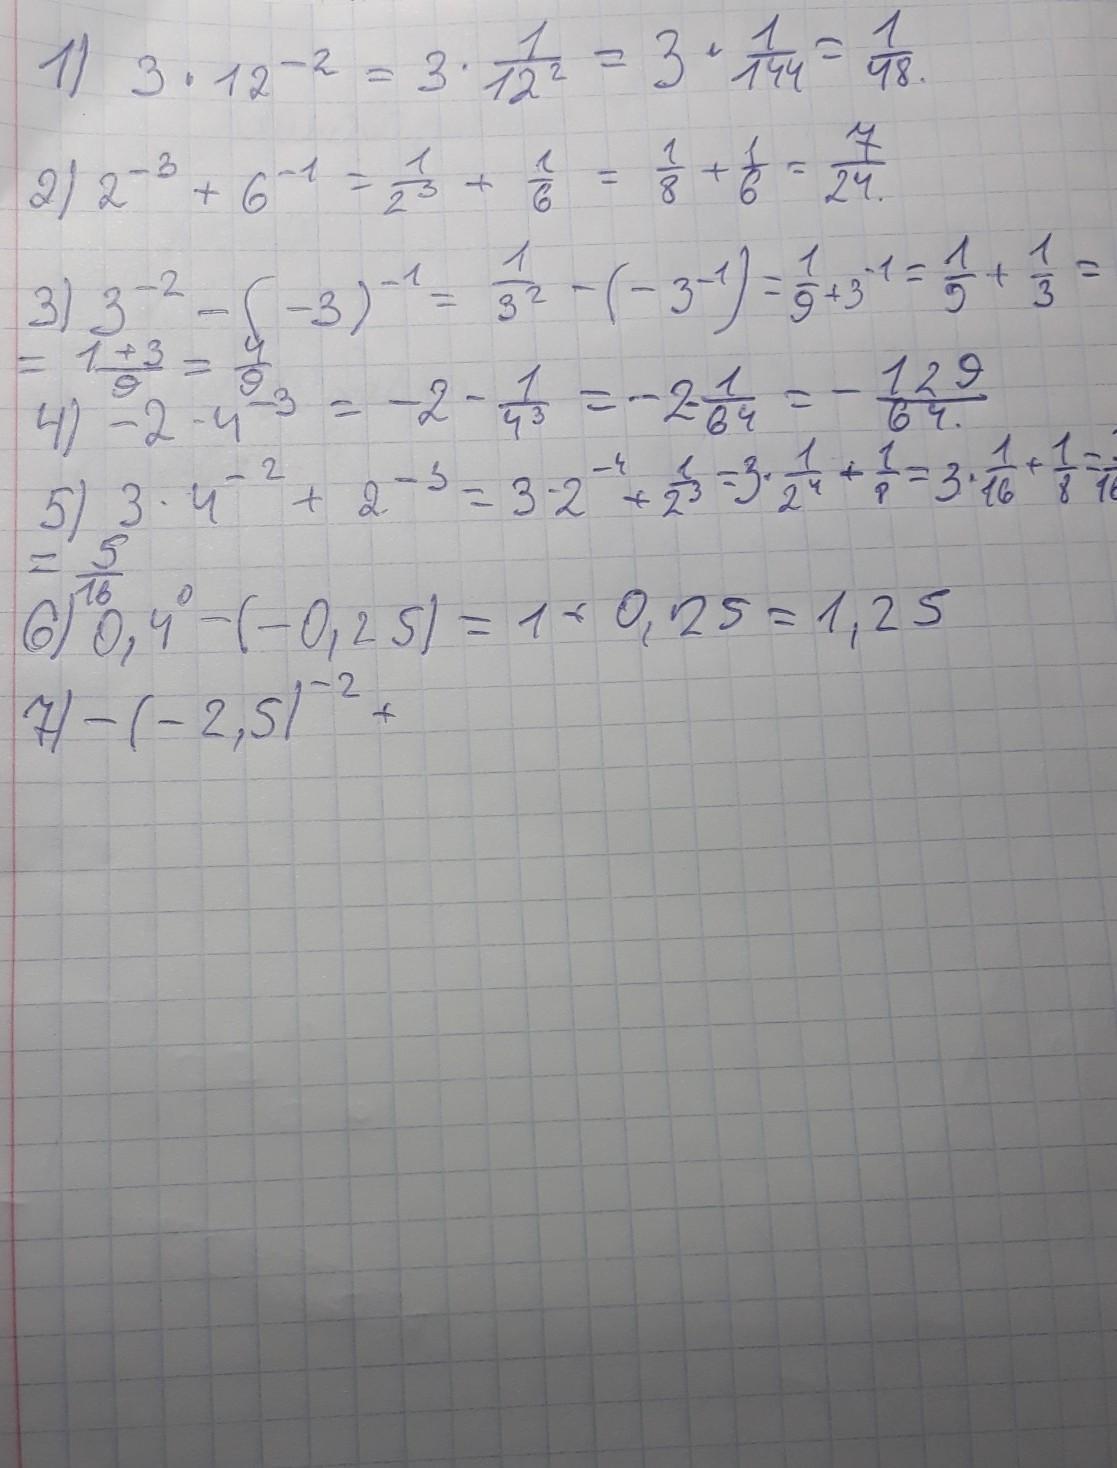 1) 3 · 12⁻² = 3 · 1/12² = 3 · 1/144 = 1/48.
2) 2⁻³ + 6⁻¹ = 1/2³ + 1/6 = 1/8 + 1/6 = 7/24.
3) 3⁻² - (-3)⁻¹ = 1/3² - (-3⁻¹) = 1/9 + 3⁻¹ = 1/9 + 1/3 =
= (1+3)/9 = 4/9
4) -2 - 4⁻³ = -2 - 1/4³ = -2 1/64 = - 129/64.
5) 3 · 4⁻² + 2⁻³ = 3 · 2⁻⁴ + 1/2³ = 3 · 1/2⁴ + 1/8 = 3 · 1/16 + 1/8 =
= 5/16
6) 0,4⁰ - (-0,25) = 1 + 0,25 = 1,25
7) - (-2,5)⁻² +